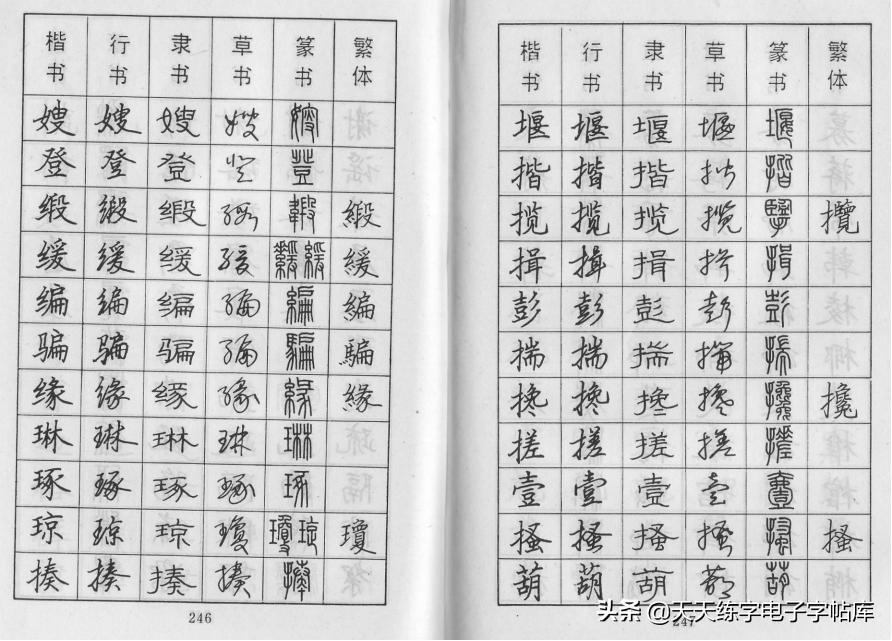 楷书 行书 隶书 草书 篆书 繁体
嫂 嫂 嫂 嫂 嫂
登 登 登 登 登
缎 缎 缎 缎 緞 緞
缓 缓 缓 缓 緩 緩
编 编 编 编 編 編
骗 骗 骗 骗 騙 騙
缘 缘 缘 缘 緣 緣
琳 琳 琳 琳 琳
琢 琢 琢 琢 琢
琼 琼 琼 琼 瓊 琁 瓊
揍 揍 揍 揍 揍
246
楷书 行书 隶书 草书 篆书 繁体
堰 堰 堰 堰 堰
揩 揩 揩 揩 揩
揽 揽 揽 揽 擥 攬
揖 揖 揖 揖 揖
彭 彭 彭 彭 彭
揣 揣 揣 揣 揣
搀 搀 搀 搀 攙 攙
搓 搓 搓 搓 搓
壹 壹 壹 壹 壹
搔 搔 搔 搔 搔 搔
葫 葫 葫 葫 葫
247
头条 @天天练字电子字帖库